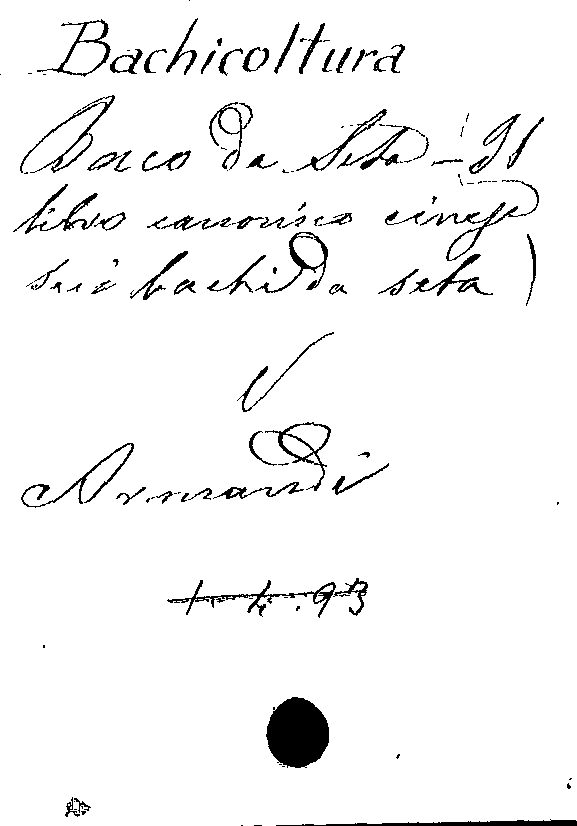 Bachicoltura
Baco da Seta - Il
libro canonico cinese
sui bachi da seta )
V
Armandi
1. 4. 93